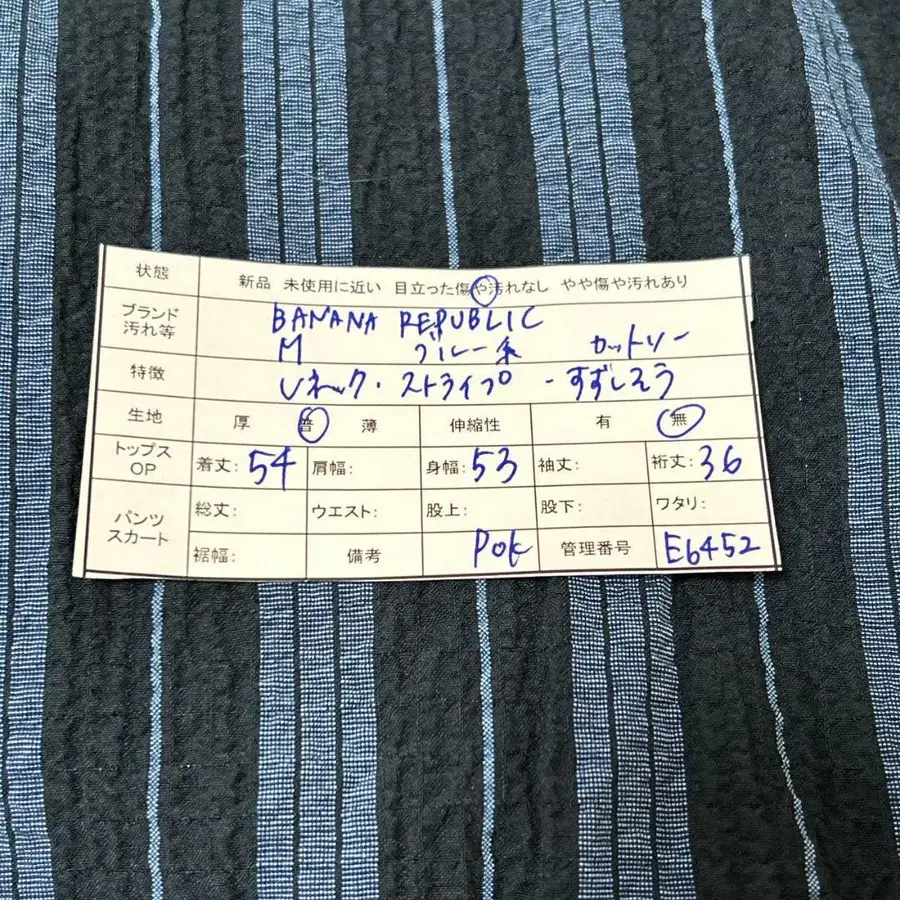 状態 新品 未使用に近い 目立った傷や汚れなし やや傷や汚れあり
ブランド 汚れ等 BANANA REPUBLIC
M ブルー系 カットソー
特徴 Vネック・ストライプ ・すずしそう
生地 厚 普 薄 伸縮性 有 無
トップス OP 着丈: 54 肩幅: 身幅: 53 袖丈: 裄丈: 36
パンツ スカート 総丈: ウエスト: 股上: 股下: ワタリ:
裾幅: 備考 Pok 管理番号 E6452